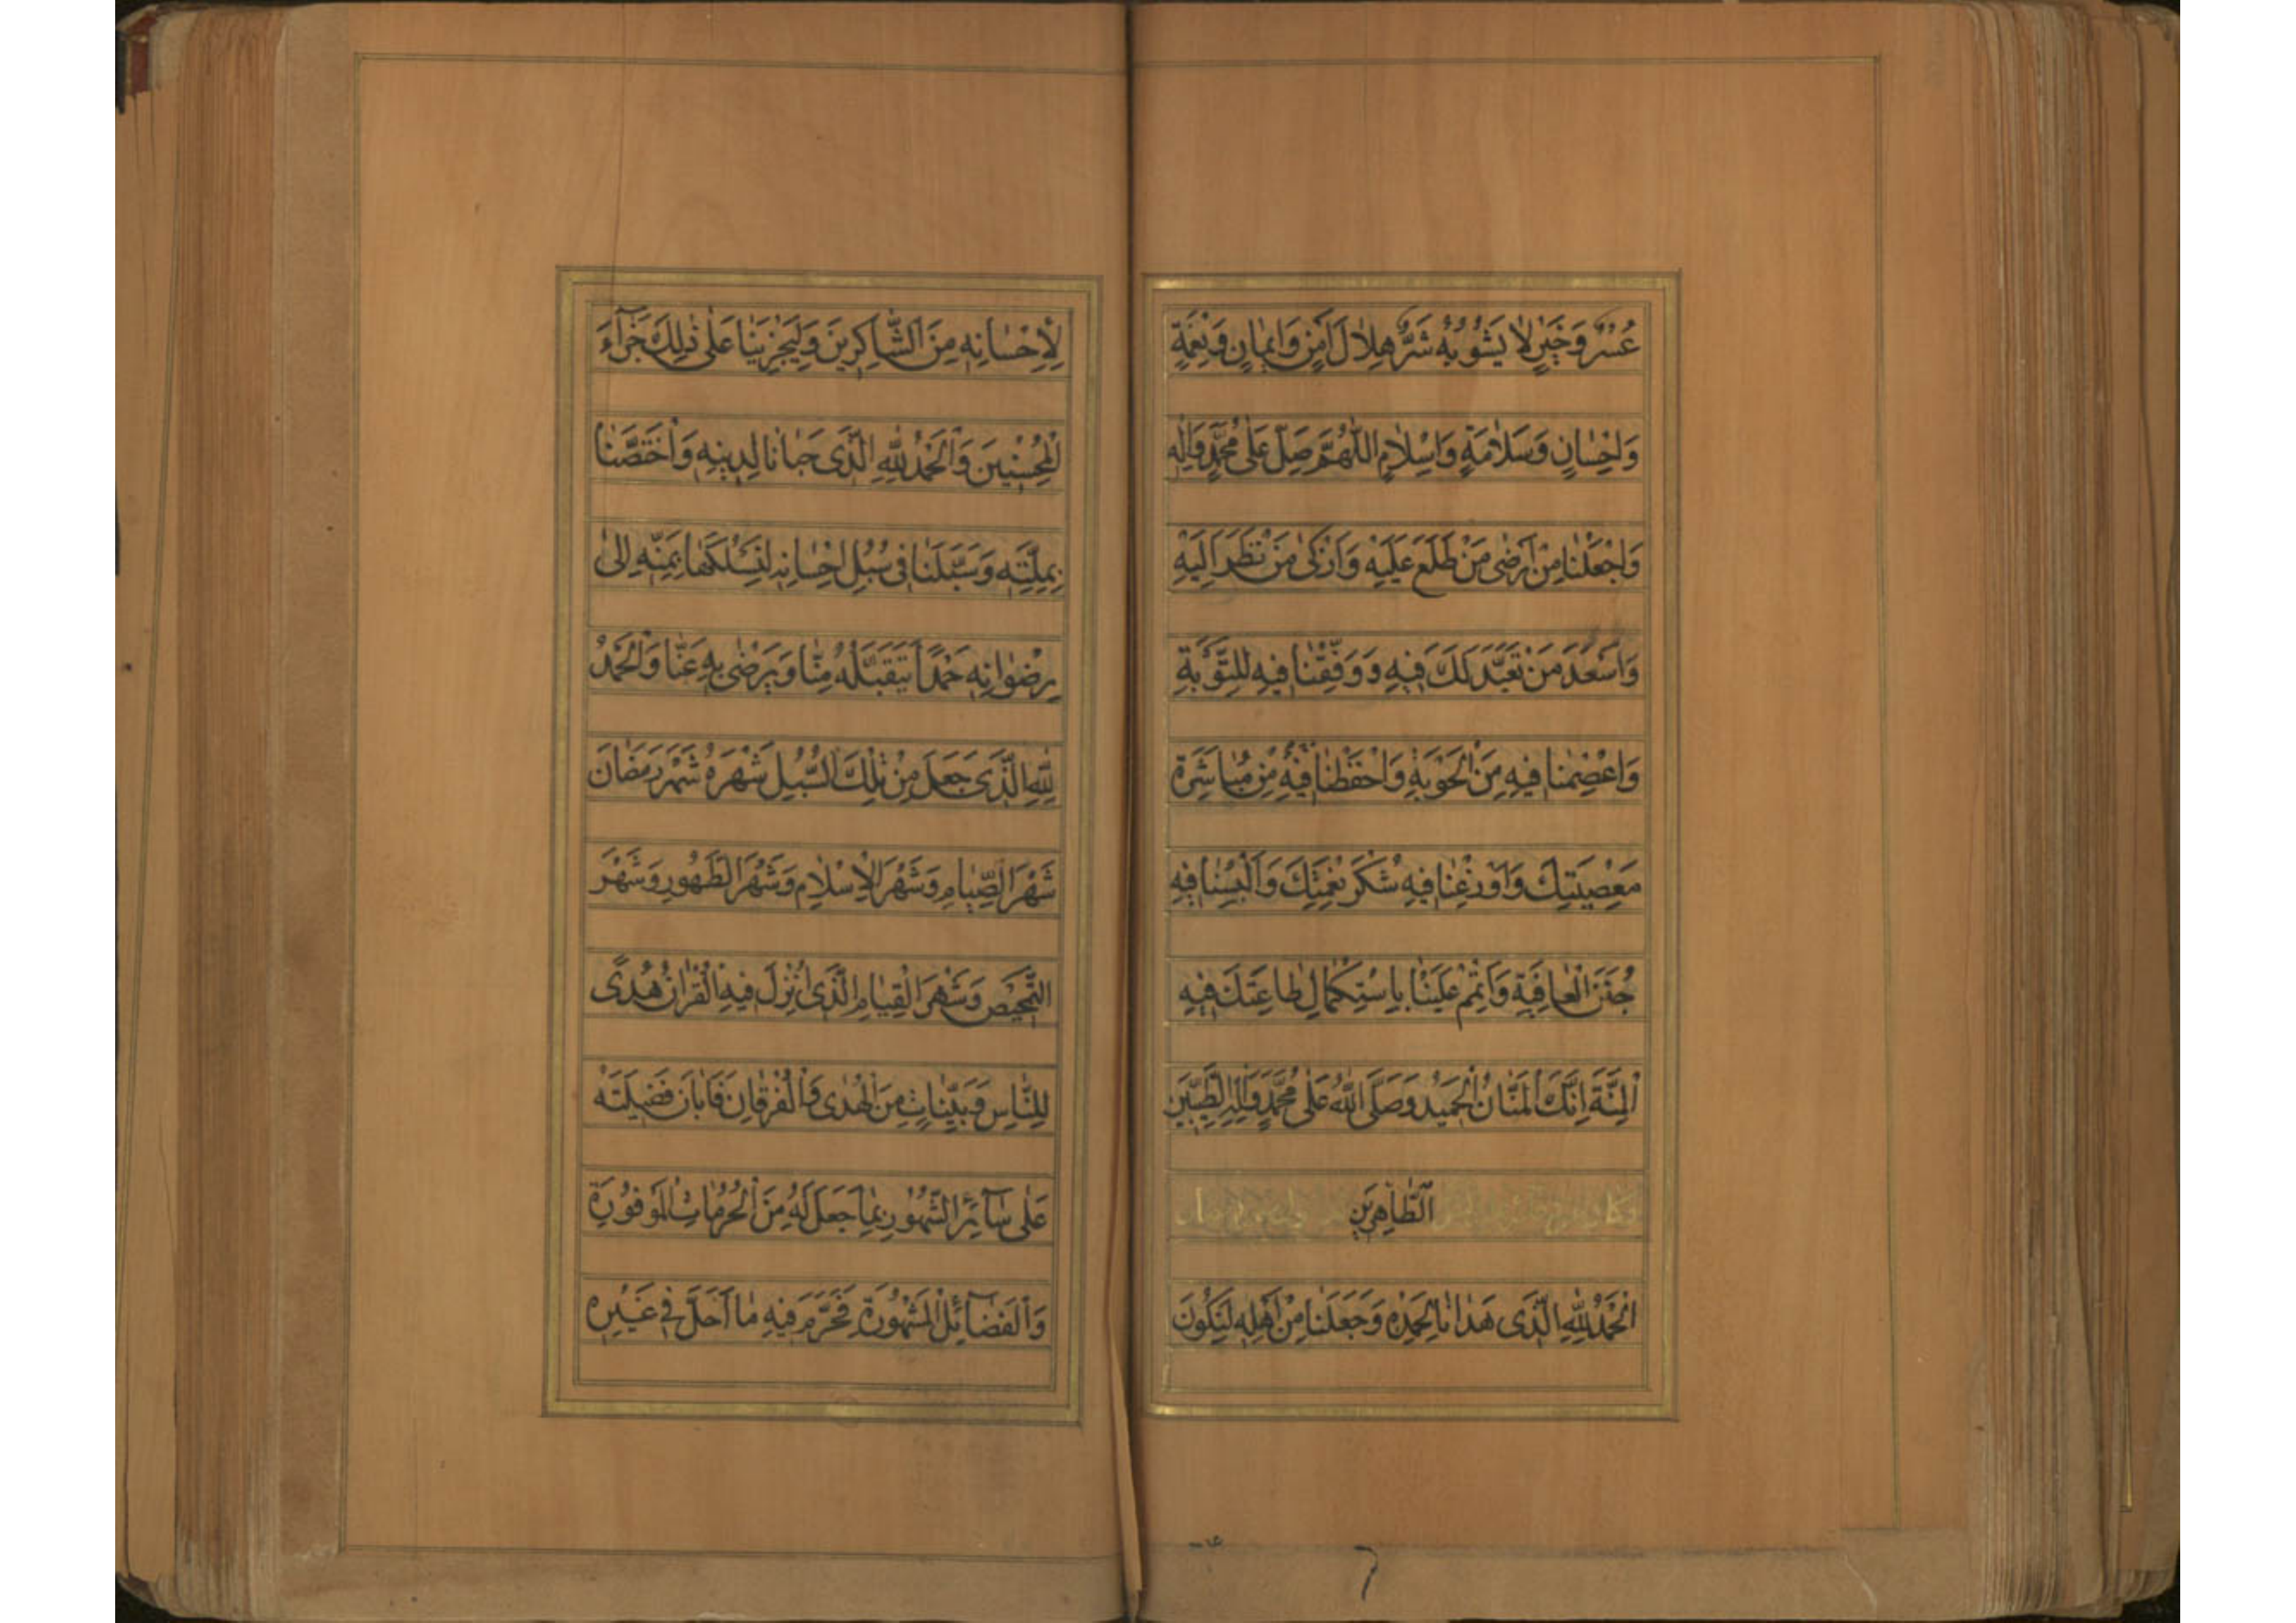 عُسْرٌ وَخَيْرٍ لَا يَشُوبُهُ شَرٌّ هِلَالَ اَمْنٍ وَاِيمَانٍ وَنِعْمَةٍ
وَاِحْسَانٍ وَسَلَامَةٍ وَاِسْلَامٍ اَللّٰهُمَّ صَلِّ عَلٰى مُحَمَّدٍ وَاٰلِهِ
وَاجْعَلْنَا مِنْ اَرْضٰى مَنْ طَلَعَ عَلَيْهِ وَاَزْكٰى مَنْ نَظَرَ اِلَيْهِ
وَاَسْعَدَ مَنْ تَعَبَّدَ لَكَ فِيهِ وَوَفِّقْنَا فِيهِ لِلتَّوْبَةِ
وَاعْصِمْنَا فِيهِ مِنَ الْحَوْبَةِ وَاحْفَظْنَا فِيهِ مِنْ مُبَاشَرَةِ
مَعْصِيَتِكَ وَاَوْزِعْنَا فِيهِ شُكْرَ نِعْمَتِكَ وَاَلْبِسْنَا فِيهِ
جُنَنَ الْعَافِيَةِ وَاَتْمِمْ عَلَيْنَا بِاسْتِكْمَالِ طَاعَتِكَ فِيهِ
الْمِنَّةَ اِنَّكَ الْمَنَّانُ الْحَمِيدُ وَصَلَّى اللّٰهُ عَلٰى مُحَمَّدٍ وَاٰلِهِ الطَّيِّبِينَ
الطَّاهِرِينَ
اَلْحَمْدُ لِلّٰهِ الَّذِى هَدَانَا لِحَمْدِهِ وَجَعَلَنَا مِنْ اَهْلِهِ لِنَكُونَ
لِاِحْسَانِهِ مِنَ الشَّاكِرِينَ وَلِيَجْزِيَنَا عَلٰى ذٰلِكَ جَزَآءَ
الْمُحْسِنِينَ وَالْحَمْدُ لِلّٰهِ الَّذِى حَبَانَا لِدِينِهِ وَاخْتَصَّنَا
بِمِلَّتِهِ وَسَبَّلَنَا فِى سُبُلِ اِحْسَانِهِ لِنَسْلُكَهَا بِمَنِّهِ اِلٰى
رِضْوَانِهِ حَمْدًا يَتَقَبَّلُهُ مِنَّا وَيَرْضٰى بِهِ عَنَّا وَالْحَمْدُ
لِلّٰهِ الَّذِى جَعَلَ مِنْ تِلْكَ السُّبُلِ شَهْرَهُ شَهْرَ رَمَضَانَ
شَهْرَ الصِّيَامِ وَشَهْرَ الْاِسْلَامِ وَشَهْرَ الطَّهُورِ وَشَهْرَ
التَّمْحِيصِ وَشَهْرَ الْقِيَامِ الَّذِى اُنْزِلَ فِيهِ الْقُرْاٰنُ هُدًى
لِلنَّاسِ وَبَيِّنَاتٍ مِنَ الْهُدٰى وَالْفُرْقَانِ فَاَبَانَ فَضِيلَتَهُ
عَلٰى سَآئِرِ الشُّهُورِ بِمَا جَعَلَ لَهُ مِنَ الْحُرُمَاتِ الْمَوْفُورَةِ
وَالْفَضَآئِلِ الْمَشْهُورَةِ فَحَرَّمَ فِيهِ مَا اَحَلَّ فِى غَيْرِهِ